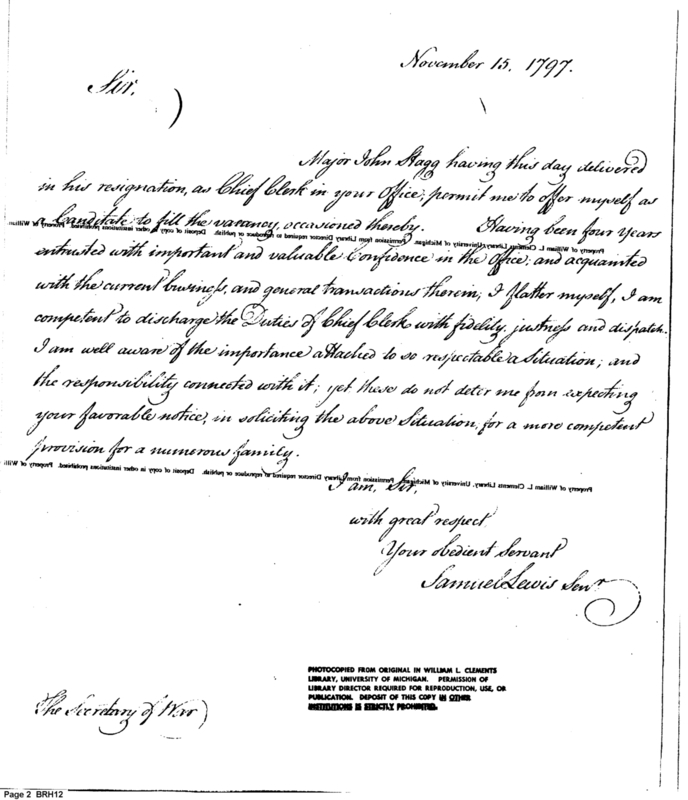 November 15. 1797.
Sir,
Major John Stagg having this day delivered
in his resignation, as Chief Clerk in your Office; permit me to offer myself as
a Candidate to fill the vacancy, occasioned thereby. Having been four years
Property of William L. Clements Library, University of Michigan. Permission from Library Director required to reproduce or publish. Deposit of copy in other institutions prohibited. Property of William
entrusted with important and valuable Confidence in the Office; and acquainted
with the current business, and general transactions therein; I flatter myself, I am
competent to discharge the Duties of Chief Clerk with fidelity, justness and dispatch.
I am well aware of the importance attached to so respectable a Situation; and
the responsibility connected with it; yet these do not deter me from expecting
your favorable notice, in soliciting the above Situation, for a more competent
provision for a numerous family.
Property of William L. Clements Library, University of Michigan. Permission from Library Director required to reproduce or publish. Deposit of copy in other institutions prohibited. Property of Willi
I am, Sir,
with great respect
Your obedient Servant
Samuel Lewis Senr
PHOTOCOPIED FROM ORIGINAL IN WILLIAM L. CLEMENTS
LIBRARY, UNIVERSITY OF MICHIGAN. PERMISSION OF
LIBRARY DIRECTOR REQUIRED FOR REPRODUCTION, USE, OR
PUBLICATION. DEPOSIT OF THIS COPY IN OTHER
INSTITUTIONS IS STRICTLY PROHIBITED.
The Secretary of War
Page 2 BRH12